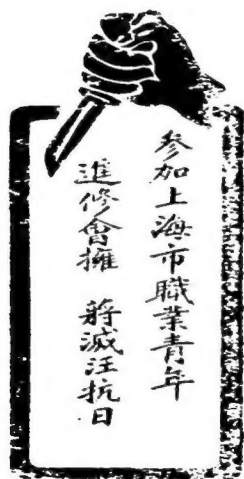 參加上海市職業青年
進修會擁　蔣滅汪抗日